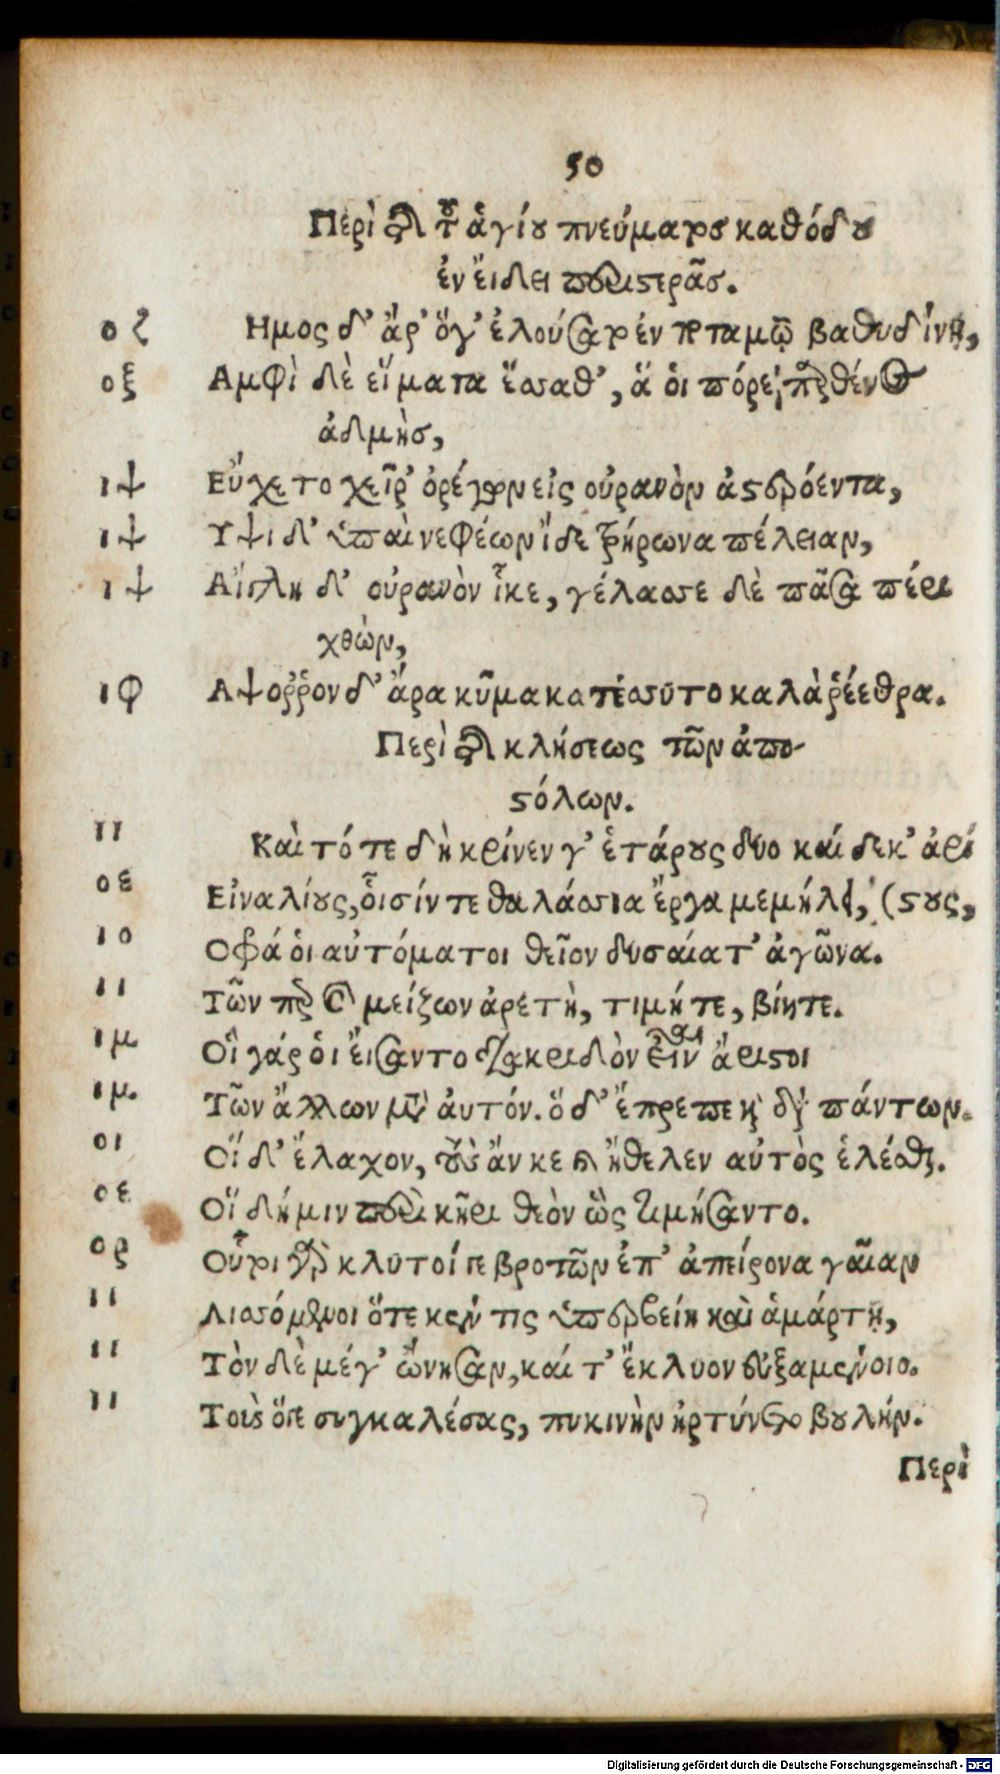 50
Περὶ τῆς τοῦ ἁγίου πνεύματος καθόδου
ἐν εἴδει περιστερᾶς.
ο ζ Ημος δ' ἄρ' ὅγ' ἐλούσατ' ἐν ποταμῷ βαθυδίνῃ,
ο ξ Αμφὶ δὲ εἵματα ἕσσαθ', ἅ οἱ πόρε παρθένος
ἀδμὴς,
ι ψ Εὔχετο χεῖρ' ὀρέγων εἰς οὐρανὸν ἀστερόεντα,
ι ψ Υψι δ' ὑπαὶ νεφέων ἴδε τρήρωνα πέλειαν,
ι ψ Αἴγλη δ' οὐρανὸν ἷκε, γέλασσε δὲ πᾶσα πέρι
χθὼν,
ι φ Αψοῤῥον δ' ἄρα κῦμα κατέσσυτο καλὰ ῥέεθρα.
Περὶ τῆς κλήσεως τῶν ἀπο-
στόλων.
ι ι Καὶ τότε δὴ κρίνεν γ' ἑτάρους δύο καί δεκ' ἀρί
ο ε Εἰναλίους, οἷσίν τε θαλάσσια ἔργα μεμήλει, (στους,
ι ο Οφρά οἱ αὐτόματοι θεῖον δυσαίατ' ἀγῶνα.
ι ι Τῶν περ καὶ μείζων ἀρετὴ, τιμή τε, βίη τε.
ι μ Οἳ γάρ οἱ εἴσαντο διακριδὸν εἶναι ἄριστοι
ι μ. Τῶν ἄλλων μετ' αὐτόν. ὅ δ' ἔπρεπε καὶ διὰ πάντων.
ο ι Οἵ δ' ἔλαχον, τοὺς ἄν κε καὶ ἤθελεν αὐτὸς ἑλέσθαι.
ο ε Οἵ δή μιν περὶ κῆρι θεὸν ὣς τιμήσαντο.
ο ρ Οὗτοι γὰρ κλυτοί τε βροτῶν ἐπ' ἀπείρονα γαῖαν
ι ι Λισσόμενοι ὅτε κέν τις ὑπερβείη καὶ ἁμάρτῃ,
ι ι Τὸν δὲ μέγ' ὤνησαν, καί τ' ἔκλυον εὐξαμένοιο.
ι ι Τοὺς ὅγε συγκαλέσας, πυκινὴν ἠρτύνετο βουλήν.
Περὶ
Digitalisierung gefördert durch die Deutsche Forschungsgemeinschaft - DFG